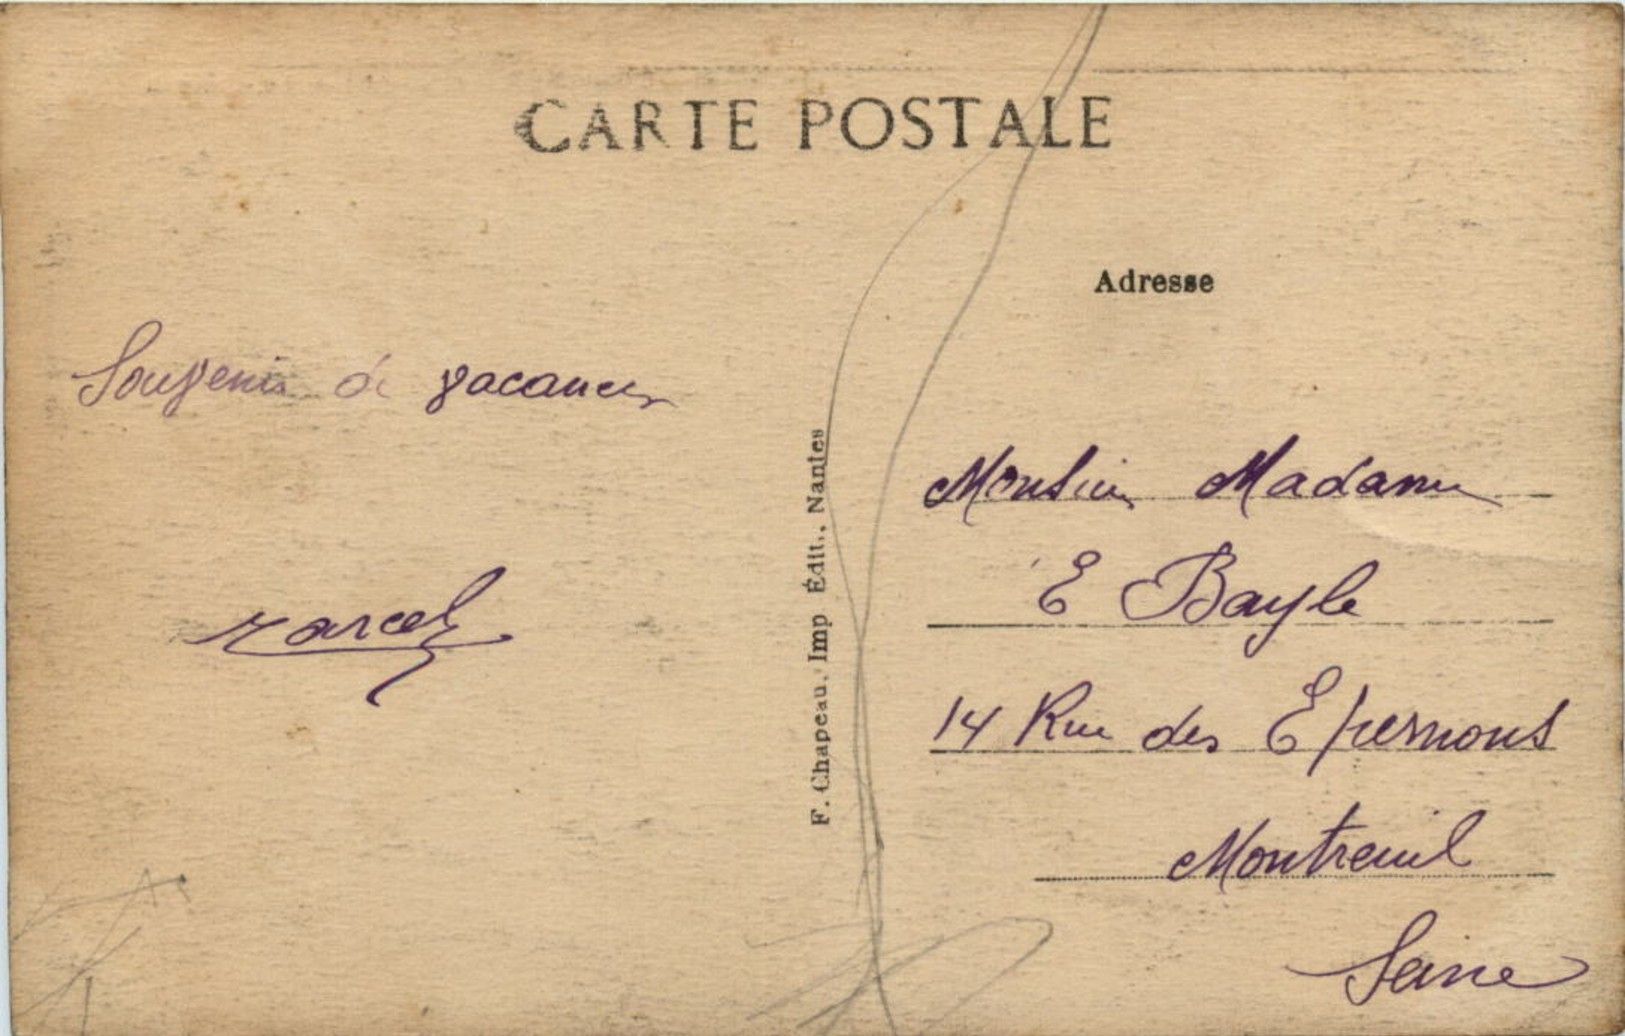 CARTE POSTALE
Souvenir de vacances
Marcel
F. Chapeau. Imp Édit., Nantes
Adresse
Monsieur Madame
E Bayle
14 Rue des Epernons
Montreuil
Seine